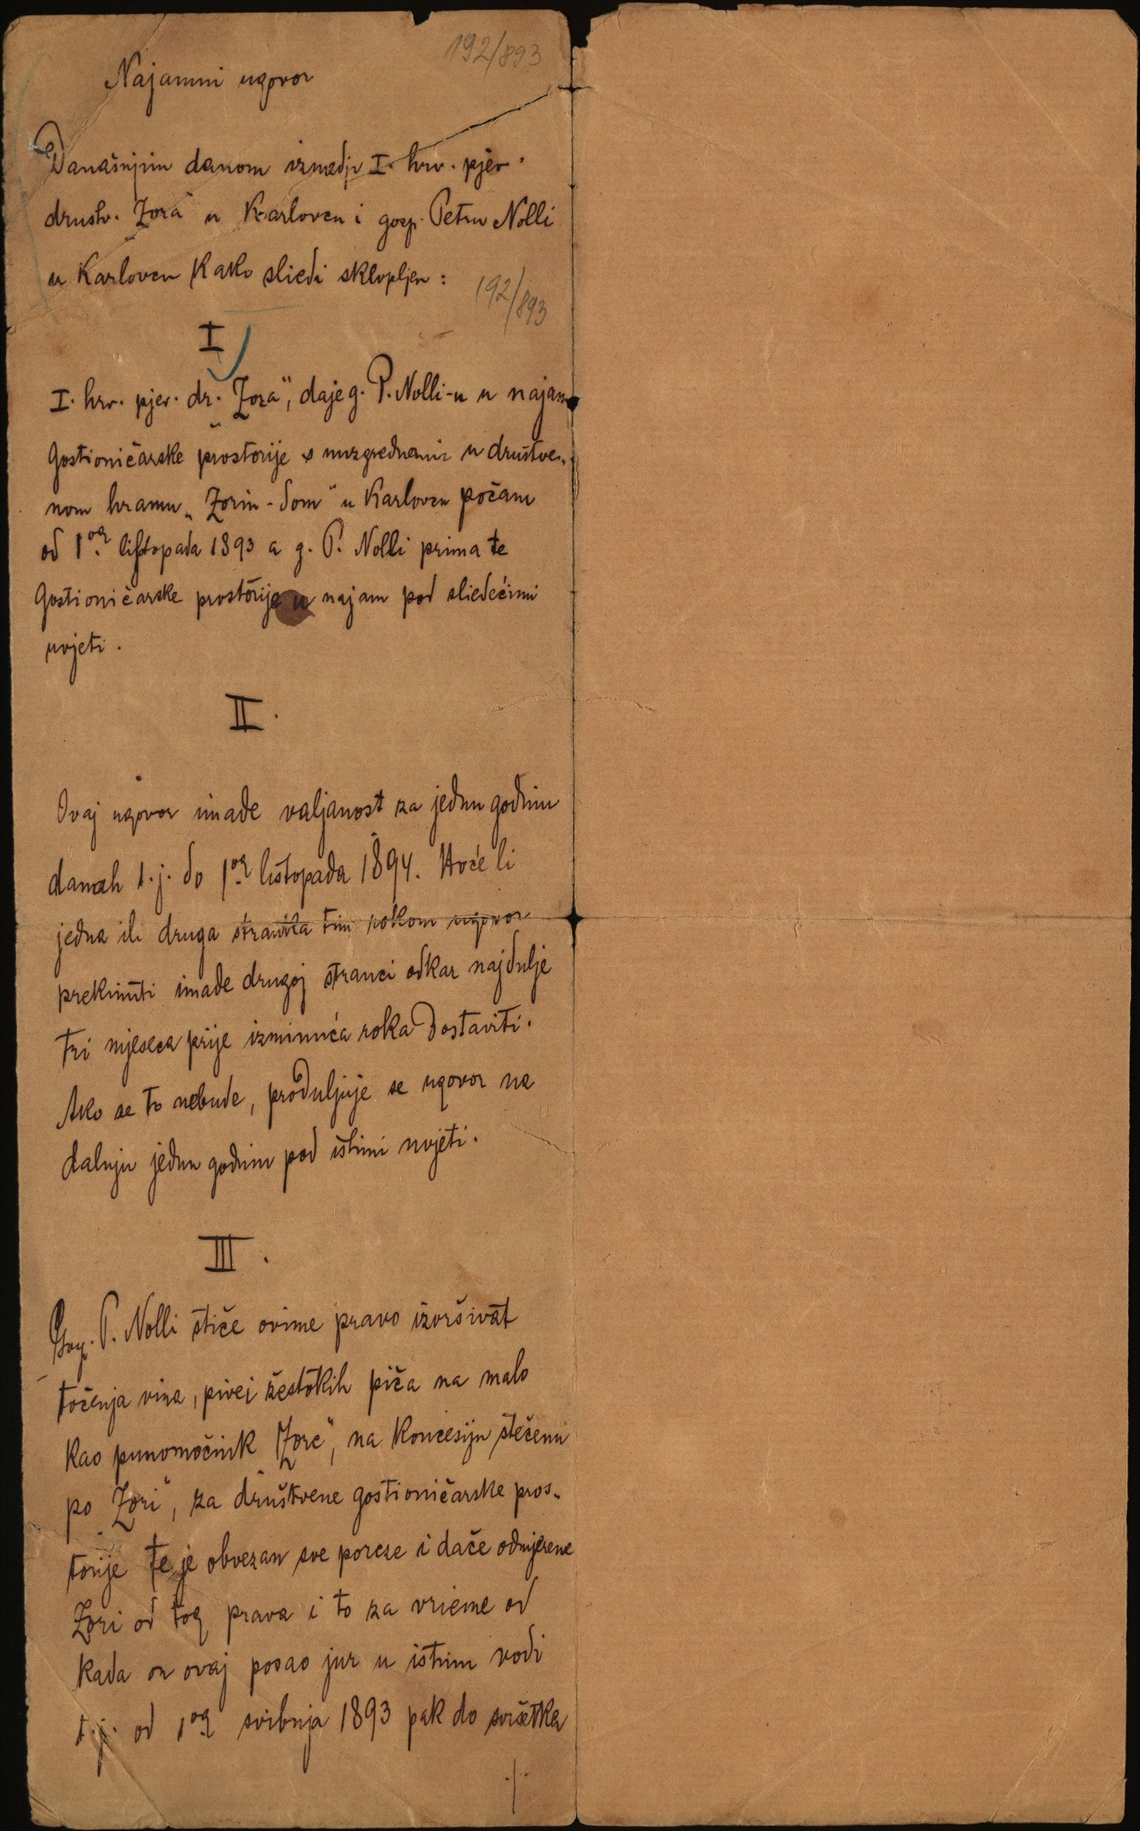 192/893
Najamni ugovor
Današnjim danom izmedju I. hrv. pjev.
družtv. "Zora" u Karlovcu i gosp. Petru Nolli
u Karlovcu kako sliedi sklopljen:
192/893
I
I. hrv. pjev. dr. "Zora", daje g. P. Nolli-u u najam
gostioničarske prostorije s nuzgrednami u društve-
nom hramu "Zorin-dom" u Karlovcu počam
od 1og listopada 1893 a g. P. Nolli prima te
gostioničarske prostorije u najam pod sliedećimi
uvjeti.
II.
Ovaj ugovor imade valjanost za jednu godinu
danah t.j. do 1og listopada 1894. Hoće li
jedna ili druga stranka tim rokom ugovor
prekinuti imade drugoj stranci odkaz najdulje
tri mjeseca prije izminuća roka dostaviti.
Ako se to nebude, produljuje se ugovor na
dalnju jednu godinu pod istimi uvjeti.
III.
Gosp. P. Nolli stiče ovime pravo izvršivat
točenja vina, pive i žestokih pića na malo
kao punomoćnik "Zore", na koncesiju stečenu
po "Zori", za društvene gostioničarske pros-
torije te je obvezan sve poreze i daće odmjerene
Zori od tog prava i to za vrieme od
kada on ovaj posao jur u istinu vodi
t.j. od 1og svibnja 1893 pak do svršetka
./.